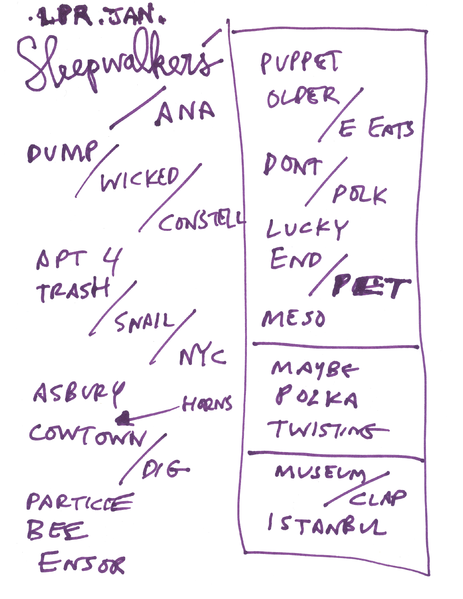 .LPR.JAN.
Sleepwalkers
ANA
DUMP
WICKED
CONSTELL
APT 4
TRASH
SNAIL
NYC
ASBURY
HORNS
COWTOWN
DIG
PARTICLE
BEE
ENSOR
PUPPET
OLDER
E EATS
DONT
POLK
LUCKY
END
PET
MESO
MAYBE
POLKA
TWISTING
MUSEUM
CLAP
ISTANBUL